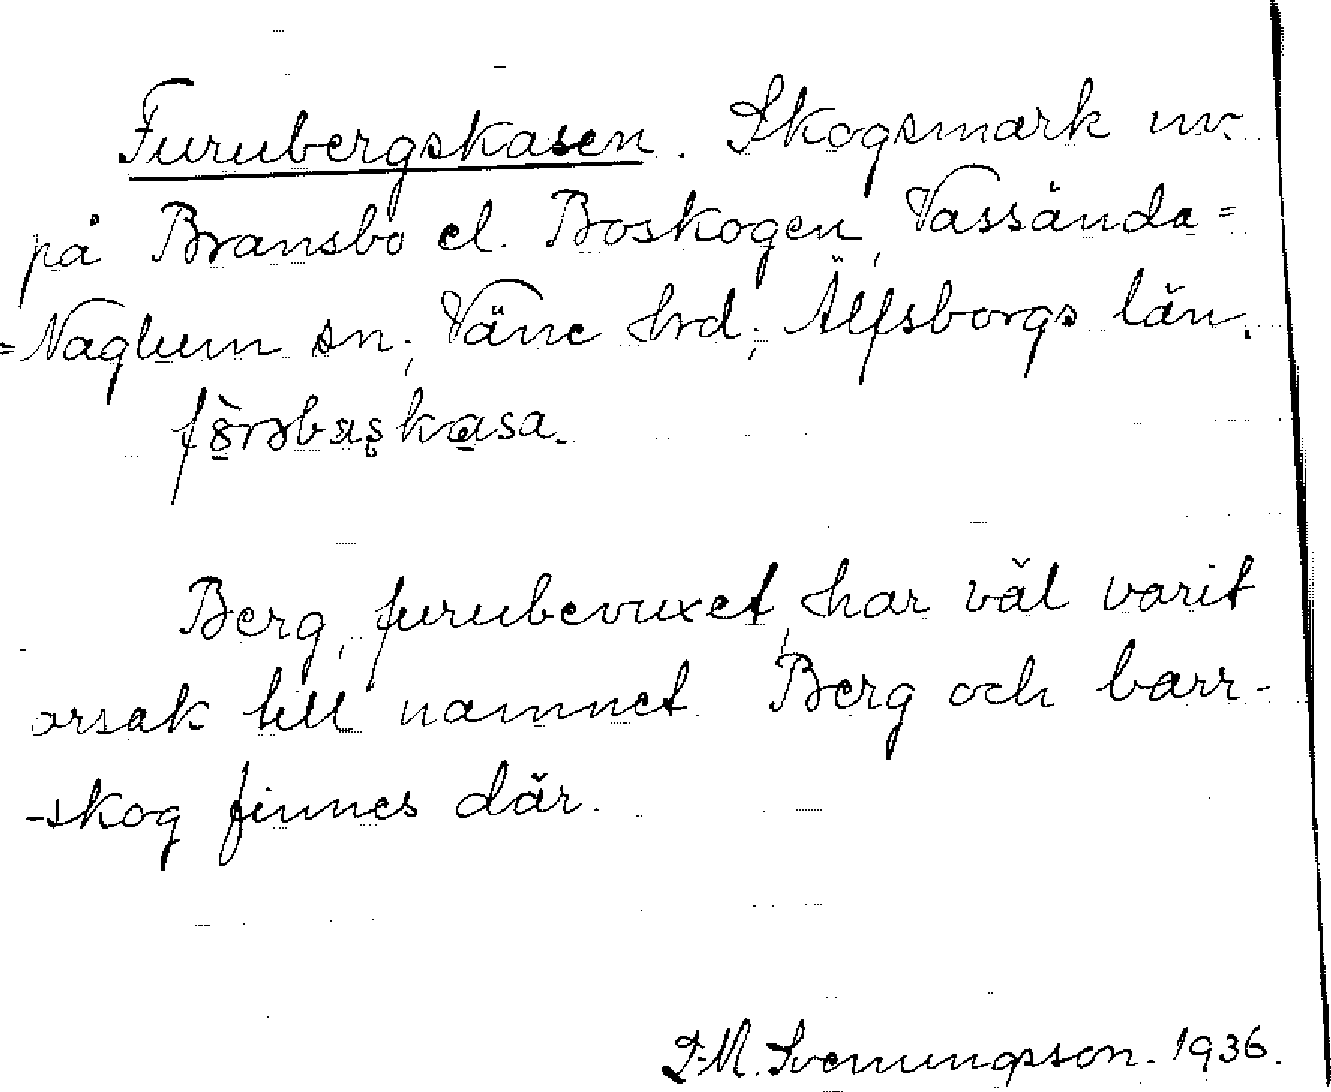 Furubergskasen. Skogsmark nv.
på Bransbo el. Boskogen, Vassända=
=Naglum sn, Väne hrd, Älfsborgs län.
Berg, furubevuxet, har väl varit
orsak till namnet. Berg och barr-
-skog finnes där.
Svenungsson. 1936.